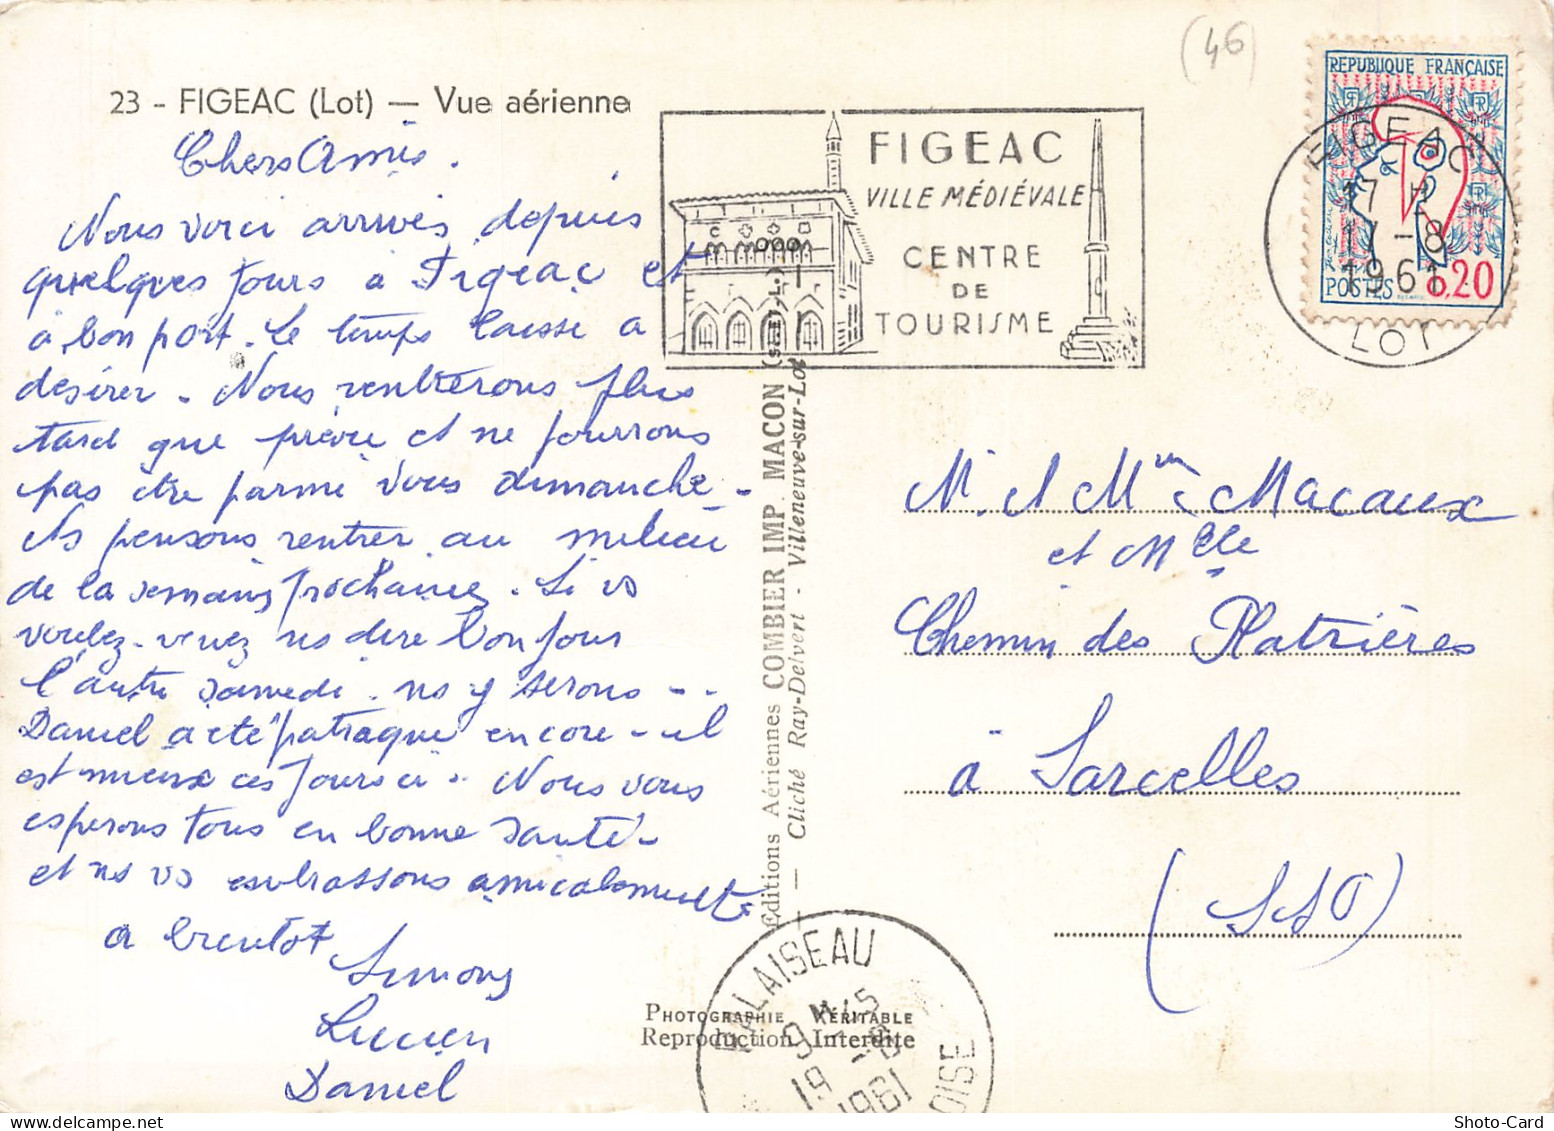 (46)
23 - FIGEAC (Lot) — Vue aérienne
Chers Amis.
Nous voici arrivés depuis
quelques jours à Figeac et
à bon port. Le temps laisse a
desirer - Nous rentrerons plus
tard que prévu et ne pourrons
pas être parmi vous dimanche -
Ns pensons rentrer au milieu
de la semaine prochaine. Si vs
voulez venez ns dire bonjour
l'autre samedi. ns y serons - -
Daniel a eté patraque encore - il
est mieux ces jours ci - Nous vous
esperons tous en bonne santé -
et ns vs embrassons amicalement
a bientot
Simone
Lucien
Daniel
FIGEAC
VILLE MÉDIÉVALE
CENTRE
DE
TOURISME
REPUBLIQUE FRANÇAISE
POSTES 0,20
FIGEAC
17 H
17 -8
1961
LOT
Editions Aériennes COMBIER IMP. MACON (S.A.I.L.)
— Cliché Ray-Delvert - Villeneuve-sur-Lot —
M. et Mme Macaux
et Mlle
Chemin des Platrières
à Sarcelles
(S&O)
PHOTOGRAPHIE VÉRITABLE
Reproduction Interdite
PALAISEAU
9 H 45
19 -8
1961
OISE
Shoto-Card